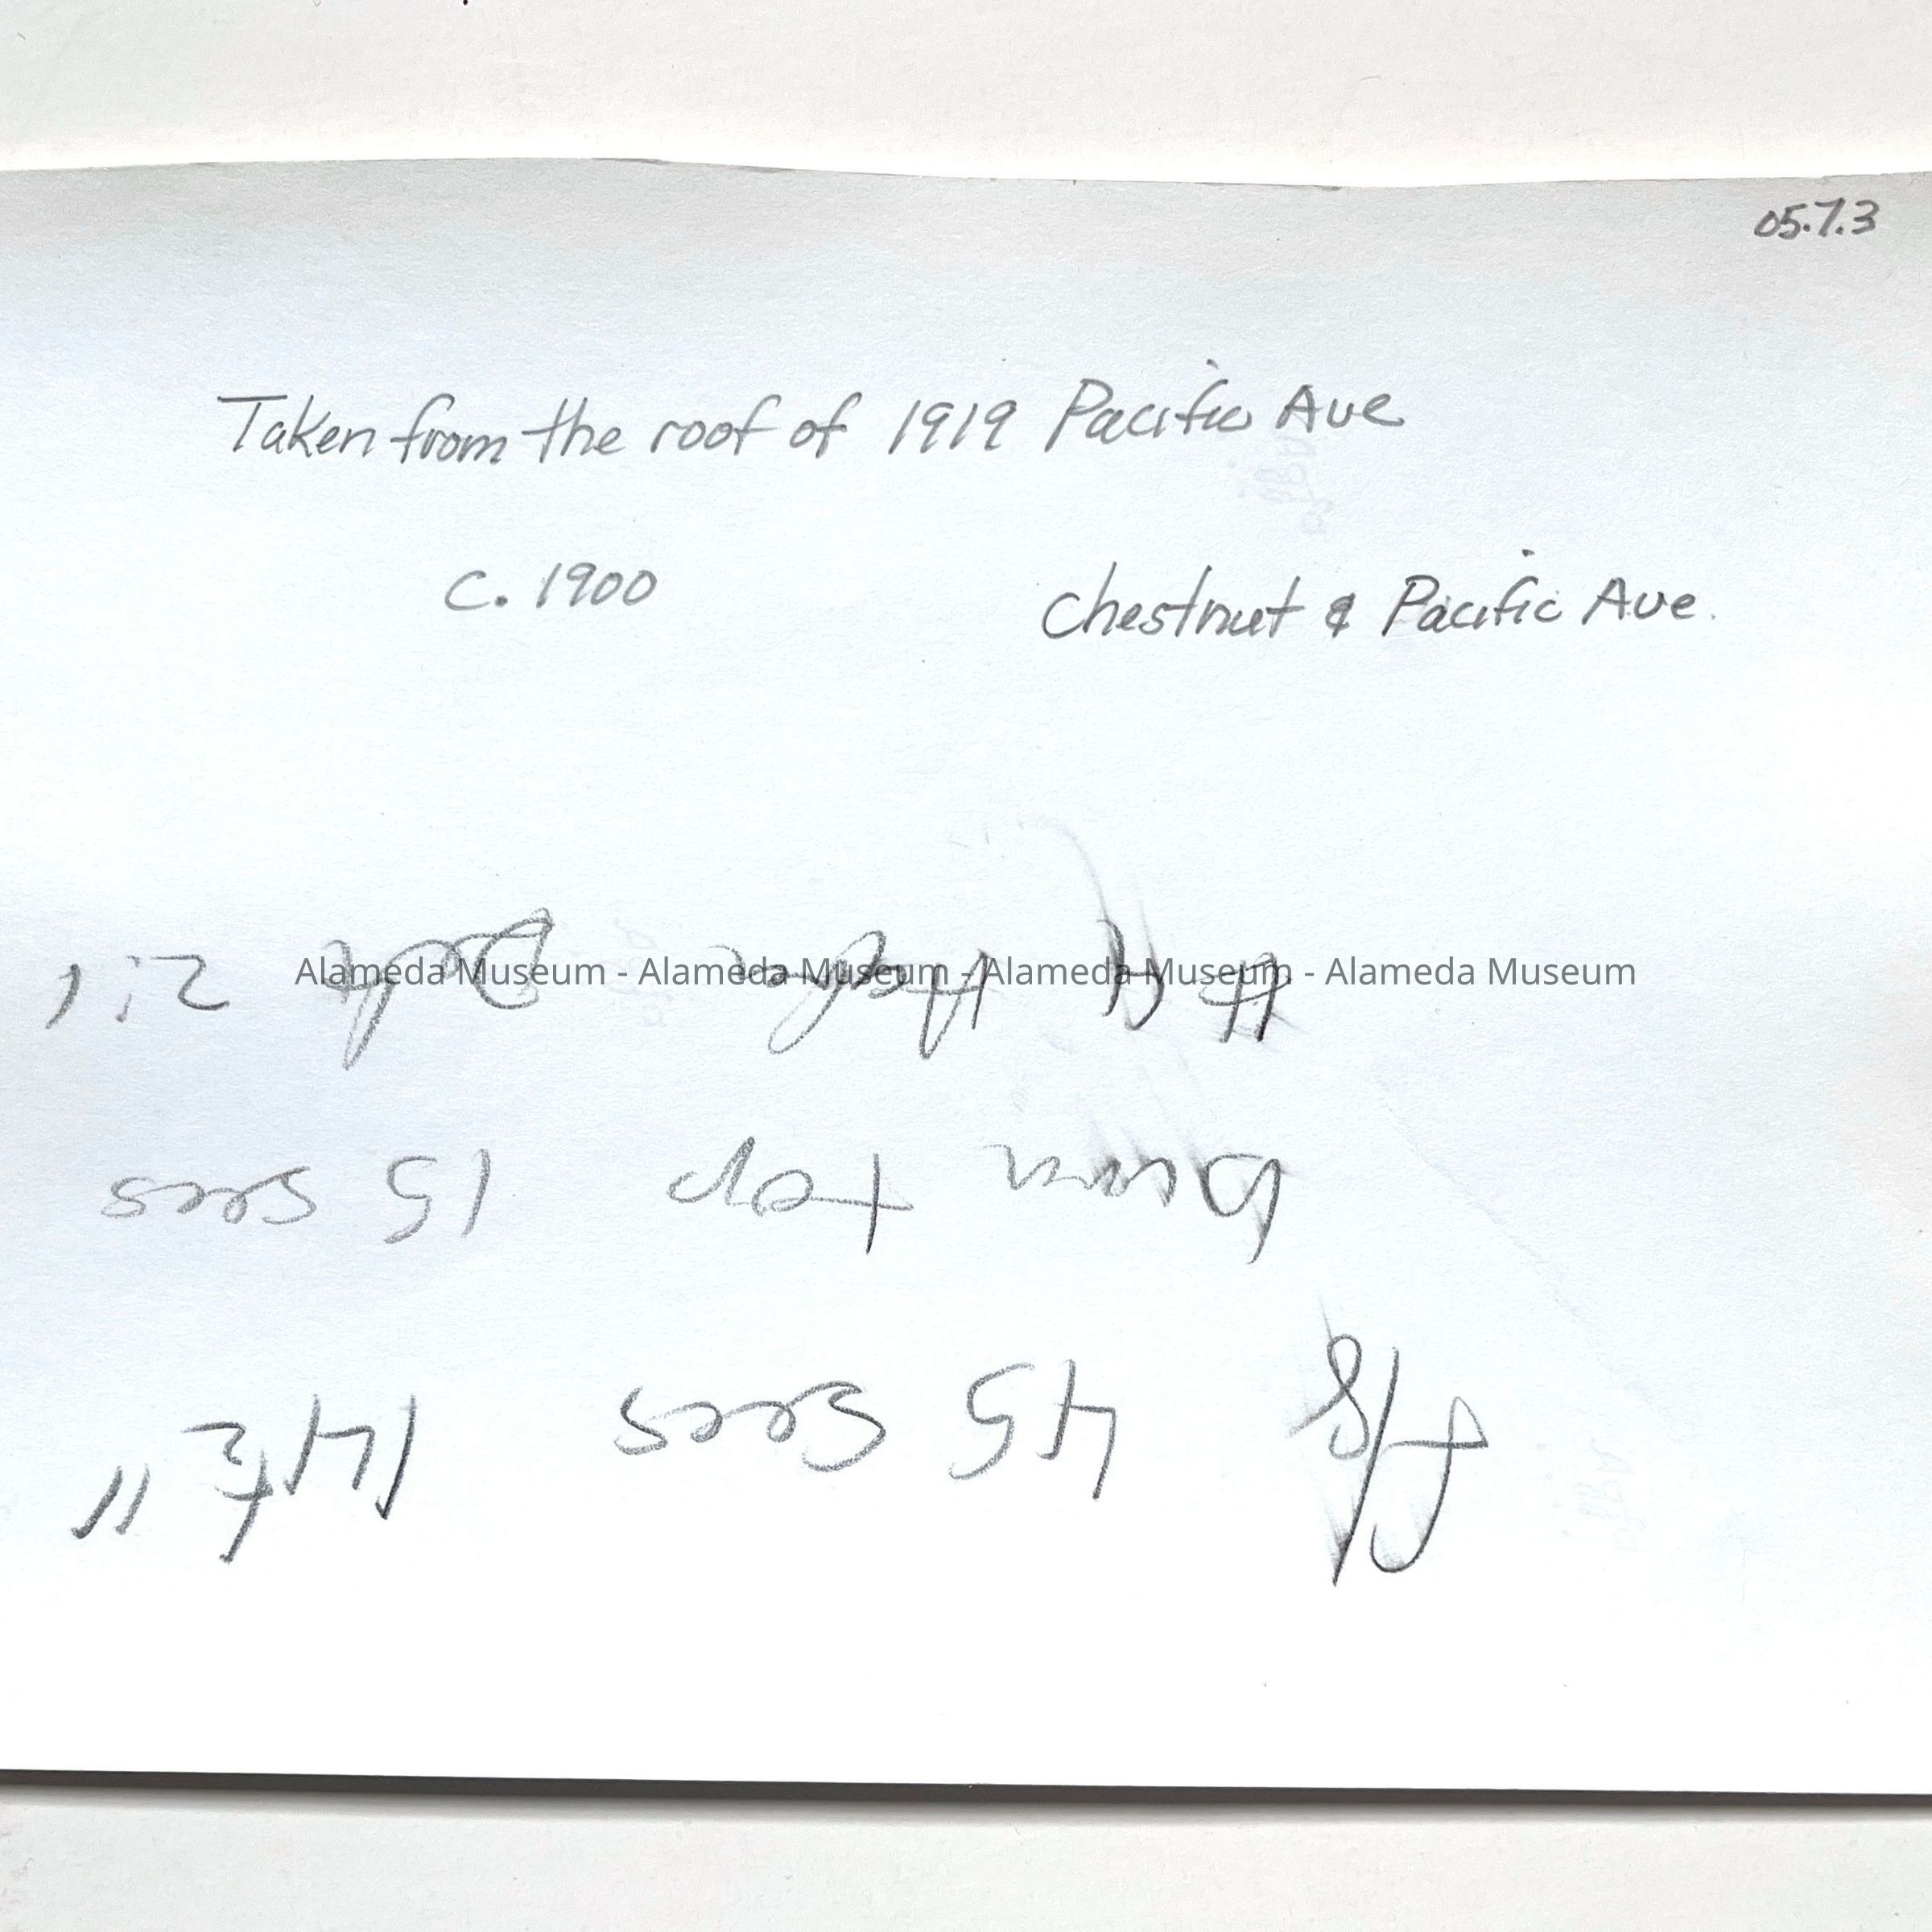 05.7.3
Taken from the roof of 1919 Pacific Ave
c. 1900
Chestnut & Pacific Ave.
Alameda Museum - Alameda Museum - Alameda Museum - Alameda Museum
f/8 45 secs
burn top 15 secs
#4 2:1